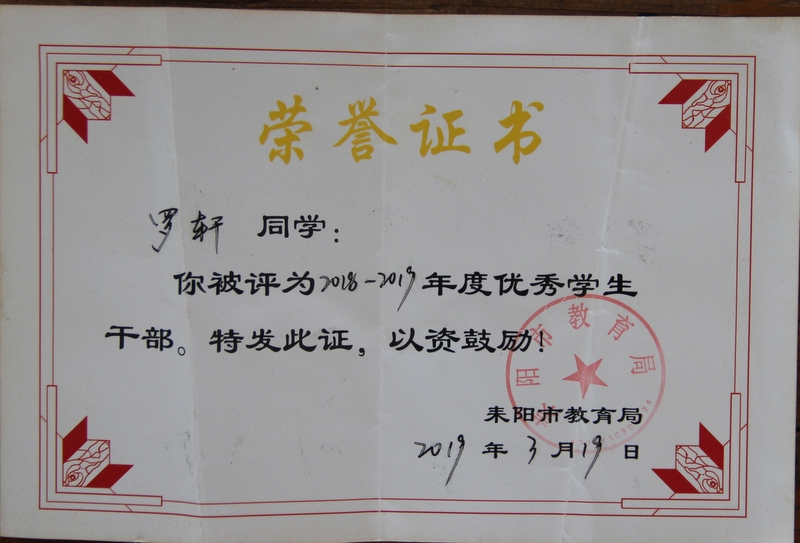 荣誉证书
罗轩 同学：
你被评为2018-2019年度优秀学生
干部。特发此证，以资鼓励！
耒阳市教育局
耒阳市教育局
2019 年 3 月 19 日